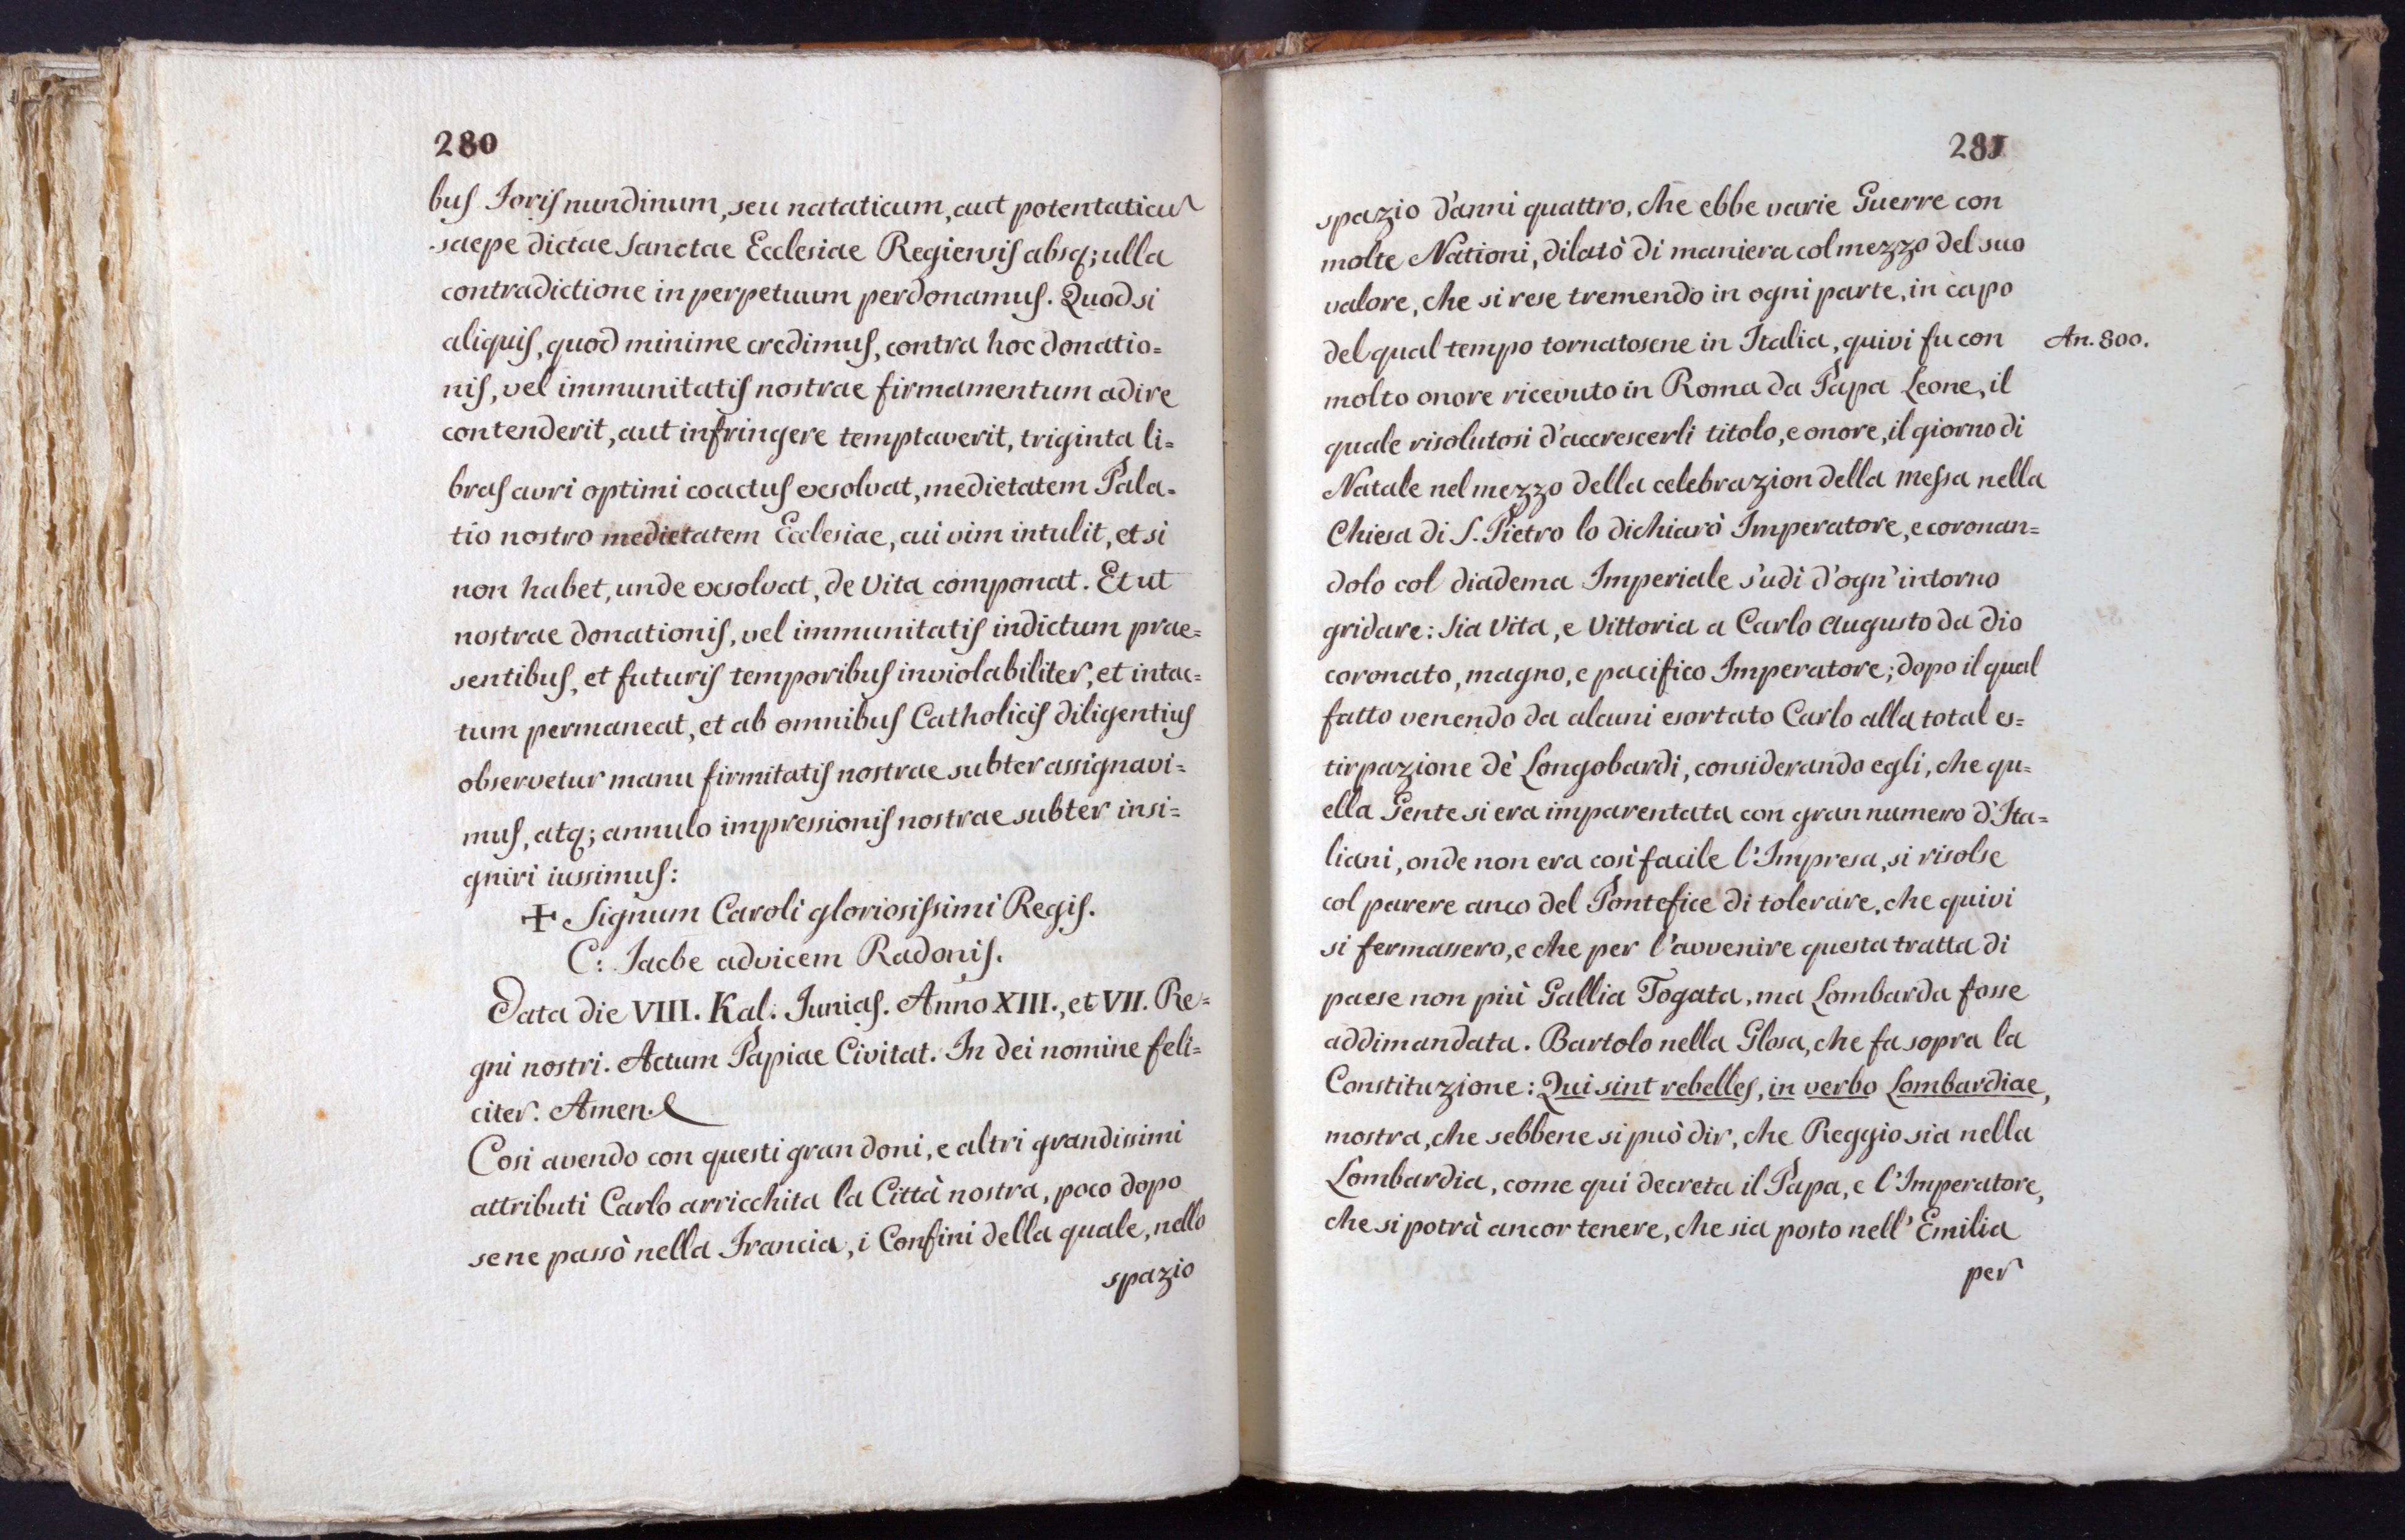 280
bus Foris nundinum, seu nataticum, aut potentaticum
saepe dictae Sanctae Ecclesiae Regiensis absq; ulla
contradictione in perpetuum perdonamus. Quod si
aliquis, quod minime credimus, contra hoc donatio=
nis, vel immunitatis nostrae firmamentum adire
contenderit, aut infringere temptaverit, triginta li=
bras auri optimi coactus exsolvat, medietatem Pala=
tio nostro medietatem Ecclesiae, cui vim intulit, et si
non habet, unde exsolvat, de vita componat. Et ut
nostrae donationis, vel immunitatis indictum prae=
sentibus, et futuris temporibus inviolabiliter, et intac=
tum permaneat, et ab omnibus Catholicis diligentius
observetur manu firmitatis nostrae subter assignavi=
mus, atq; annulo impressionis nostrae subter insi=
gniri iussimus:
✠ Signum Caroli gloriosissimi Regis.
C: Jacbe advicem Radonis.
Data die VIII. Kal. Junias. Anno XIII., et VII. Re=
gni nostri. Actum Papiae Civitat. In dei nomine feli=
citer. Amen.
Cosi avendo con questi gran doni, e altri grandissimi
attributi Carlo arricchita la Città nostra, poco dopo
sene passò nella Francia, i Confini della quale, nello
spazio
281
spazio d'anni quattro, che ebbe varie Guerre con
molte Nationi, dilatò di maniera col mezzo del suo
valore, che si rese tremendo in ogni parte, in capo
del qual tempo tornatosene in Italia, quivi fu con An. 800.
molto onore ricevuto in Roma da Papa Leone, il
quale risolutosi d'accrescerli titolo, e onore, il giorno di
Natale nel mezzo della celebrazion della Messa nella
Chiesa di S. Pietro lo dichiarò Imperatore, e coronan=
dolo col diadema Imperiale s'udì d'ogn'intorno
gridare: Sia Vita, e Vittoria a Carlo Augusto da dio
coronato, magno, e pacifico Imperatore; dopo il qual
fatto venendo da alcuni esortato Carlo alla total es=
tirpazione de' Longobardi, considerando egli, che qu=
ella Gente si era imparentata con gran numero d'Ita=
liani, onde non era così facile l'Impresa, si risolse
col parere anco del Pontefice di tolerare, che quivi
si fermassero, e che per l'avvenire questa tratta di
paese non più Gallia Togata, ma Lombarda fosse
addimandata. Bartolo nella Glosa, che fa sopra la
Constituzione: Qui sint rebelles, in verbo Lombardiae,
mostra, che sebbene si può dir, che Reggio sia nella
Lombardia, come qui decreta il Papa, e l'Imperatore,
che si potrà ancor tenere, che sia posto nell'Emilia
per